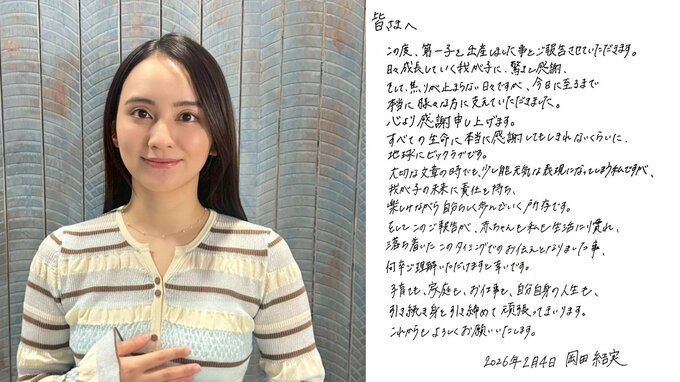 皆さまへ
この度、第一子を出産しました事をご報告させていただきます。
日々成長していく我が子に、驚きと感謝、
そして、焦りが止まらない日々ですが、今日に至るまで
本当に様々な方に支えていただきました。
心より感謝申し上げます。
すべての生命に本当に感謝してもしきれないくらいに、
地球にビッグラブです。
大切な文章の時でも、少し能天気な表現になってしまう私ですが、
我が子の未来に責任を持ち、
楽しみながら自分らしく歩んでいく所存です。
そしてこのご報告が、赤ちゃんも私も生活に慣れ、
落ち着いたこのタイミングでのお伝えとなりました事、
何卒ご理解いただけますと幸いです。
子育ても、家庭も、お仕事も、自分自身の人生も、
引き続き身を引き締めて頑張ってまいります。
これからもよろしくお願いいたします。
2026年2月4日 岡田結実